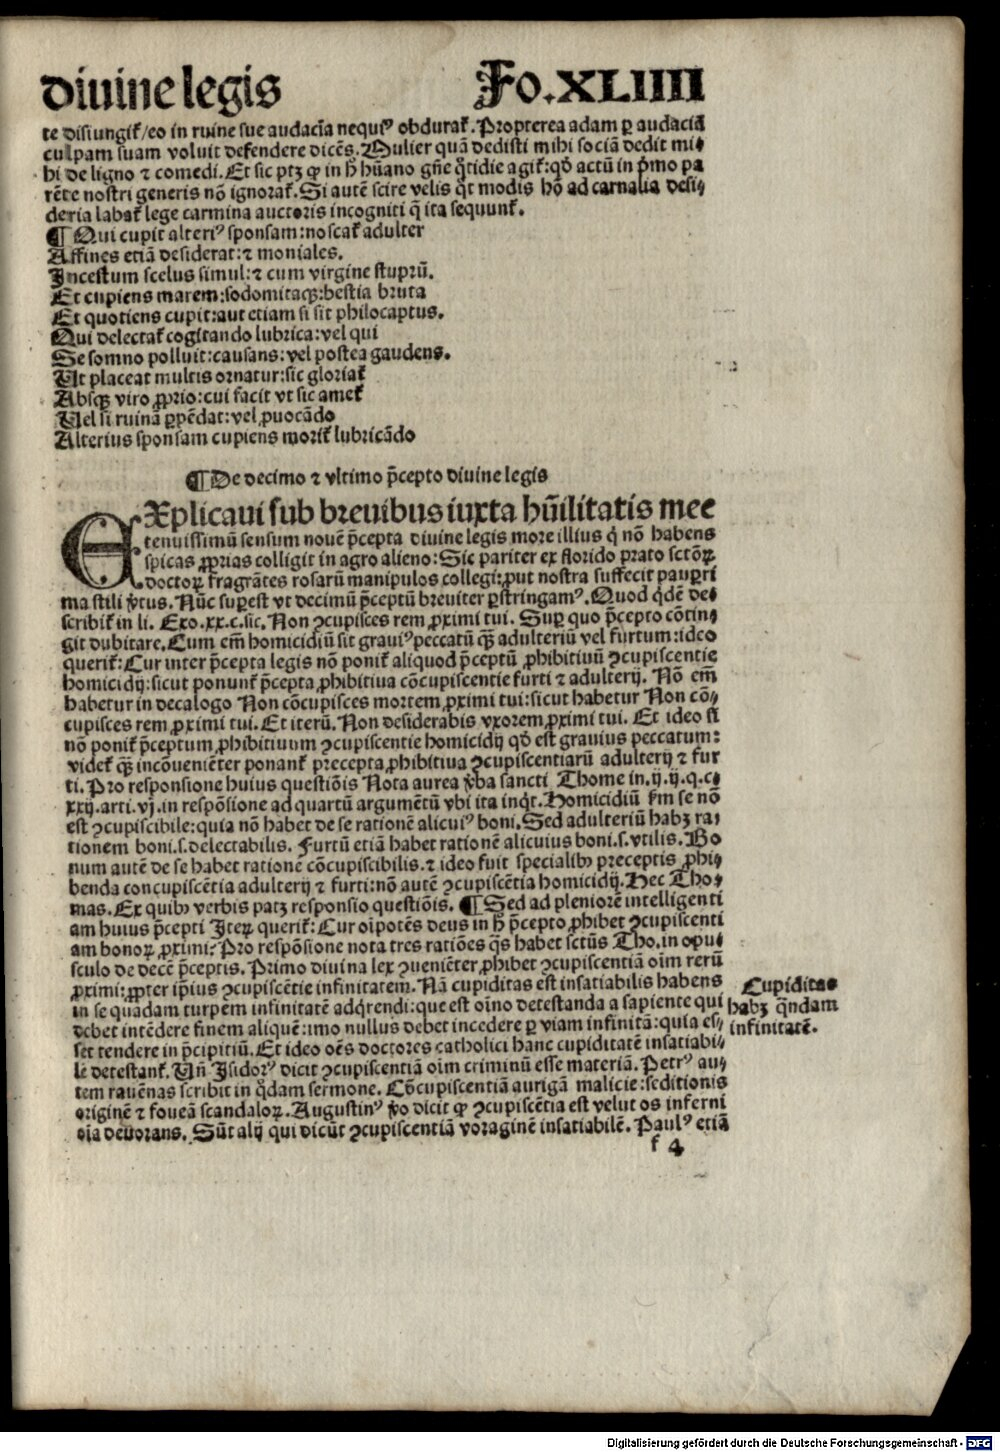 diuine legis Fo.XLIIII
te disiungiť/eo in ruine sue audacia nequiꝰ obdurať. Propterea adam ꝑ audaciã
culpam suam voluit defendere dicẽs. Mulier quã dedisti mihi sociã dedit mi⸗
hi de ligno ⁊ comedi. Et sic ptꝫ ꝙ in h̄ hũano gñe q̃tidie agiť: qđ actũ in p̃mo pa
rẽte nostri generis nõ ignorať. Si autẽ scire velis q̃t modis hõ ad carnalia desi⸗
deria labať lege carmina auctoris incogniti q̃ ita sequunť.
¶ Qui cupit alteriꝰ sponsam: noscať adulter
Affines etiã desiderat: ⁊ moniales.
Incestum scelus simul: ⁊ cum virgine stuprũ.
Et cupiens marem: sodomitaqꝫ: bestia bruta
Et quotiens cupit: aut etiam si sit philocaptus.
Qui delectať cogitando lubrica: vel qui
Se somno polluit: causans: vel postea gaudens.
Ut placeat multis ornatur: sic gloriať
Absqꝫ viro ꝓprio: cui facit vt sic ameť
Uel si ruinã ꝑpẽdat: vel ꝓuocãdo
Alterius sponsam cupiens moriť lubricãdo
¶ De decimo ⁊ vltimo p̃cepto diuine legis
EXplicaui sub breuibus iuxta hũilitatis mee
tenuissimũ sensum nouẽ p̃cepta diuine legis more illius q̃ nõ habens
spicas ꝓprias colligit in agro alieno: Sic pariter ex florido prato sctõꝝ
doctoꝝ fragrãtes rosarũ manipulos collegi: ꝓut nostra suffecit pauꝑri
ma stili ṽtus. Nũc suꝑest vt decimũ p̃ceptũ breuiter ꝑstringamꝰ. Quod q̃dẽ de⸗
scribiť in li. Exo. xx. c. sic. Non ꝯcupisces rem ꝓximi tui. Suꝑ quo p̃cepto cõtin⸗
git dubitare. Cum em̃ homicidiũ sit grauiꝰ peccatũ qꝫ̃ adulteriũ vel furtum: ideo
queriť: Cur inter p̃cepta legis nõ poniť aliquod p̃ceptũ ꝓhibitiuũ ꝯcupiscentie
homicidij: sicut ponunť p̃cepta ꝓhibitiua cõcupiscentie furti ⁊ adulterij. Nõ em̃
habetur in decalogo Non cõcupisces mortem ꝓximi tui: sicut habetur Non cõ⸗
cupisces rem ꝓximi tui. Et iterũ. Non desiderabis vxorem ꝓximi tui. Et ideo si
nõ poniť p̃ceptum ꝓhibitiuum ꝯcupiscentie homicidij qđ est grauius peccatum:
videť qꝫ̃ incõueniẽter ponanť precepta ꝓhibitiua ꝯcupiscentiarũ adulterij ⁊ fur
ti. Pro responsione huius questiõis Nota aurea ṽba sancti Thome in. ij. ij. q. c⸗
xxij. arti. vj. in respõsione ad quartũ argumẽtũ vbi ita inq̃t. Homicidiũ ẜm se nõ
est ꝯcupiscibile: quia nõ habet de se rationẽ alicuiꝰ boni. Sed adulteriũ habꝫ ra⸗
tionem boni. s. delectabilis. Furtũ etiã habet rationẽ alicuius boni. s. vtilis. Bo
num autẽ de se habet rationẽ cõcupiscibilis. ⁊ ideo fuit specialibꝰ preceptis ꝓhi⸗
benda concupiscẽtia adulterij ⁊ furti: nõ autẽ ꝯcupiscẽtia homicidij. Hec Tho⸗
mas. Ex quibꝰ verbis patꝫ responsio questiõis. ¶ Sed ad pleniorẽ intelligenti
am huius p̃cepti Iteꝝ queriť: Cur oĩpotẽs deus in h̄ p̃cepto ꝓhibet ꝯcupiscenti
am bonoꝝ ꝓximi? Pro respõsione nota tres ratiões q̃s habet sctũs Tho. in opu⸗
sculo de decẽ p̃ceptis. Primo diuina lex ꝯueniẽter ꝓhibet ꝯcupiscentiã oĩm rerũ
ꝓximi: ꝓpter ip̃ius ꝯcupiscẽtie infinitatem. Nã cupiditas est insatiabilis habens
in se quadam turpem infinitatẽ adq̃rendi: que est oĩno detestanda a sapiente qui
debet intẽdere finem aliquẽ: imo nullus debet incedere ꝑ viam infinitã: quia es⸗
set tendere in p̃cipitiũ. Et ideo oẽs doctores catholici hanc cupiditatẽ insatiabi⸗
lẽ detestanť. Uñ Isidorꝰ dicit ꝯcupiscentiã oĩm criminũ esse materiã. Petrꝰ au⸗
tem rauẽnas scribit in q̃dam sermone. Cõcupiscentiã aurigã malicie: seditionis
originẽ ⁊ foueã scandaloꝝ. Augustinꝰ ṽo dicit ꝙ ꝯcupiscẽtia est velut os inferni
oĩa deuorans. Sũt alij qui dicũt ꝯcupiscentiã voraginẽ insatiabilẽ. Paulꝰ etiã
f 4
Cupiditas
habꝫ q̃ndam
infinitatẽ.
Digitalisierung gefördert durch die Deutsche Forschungsgemeinschaft - DFG